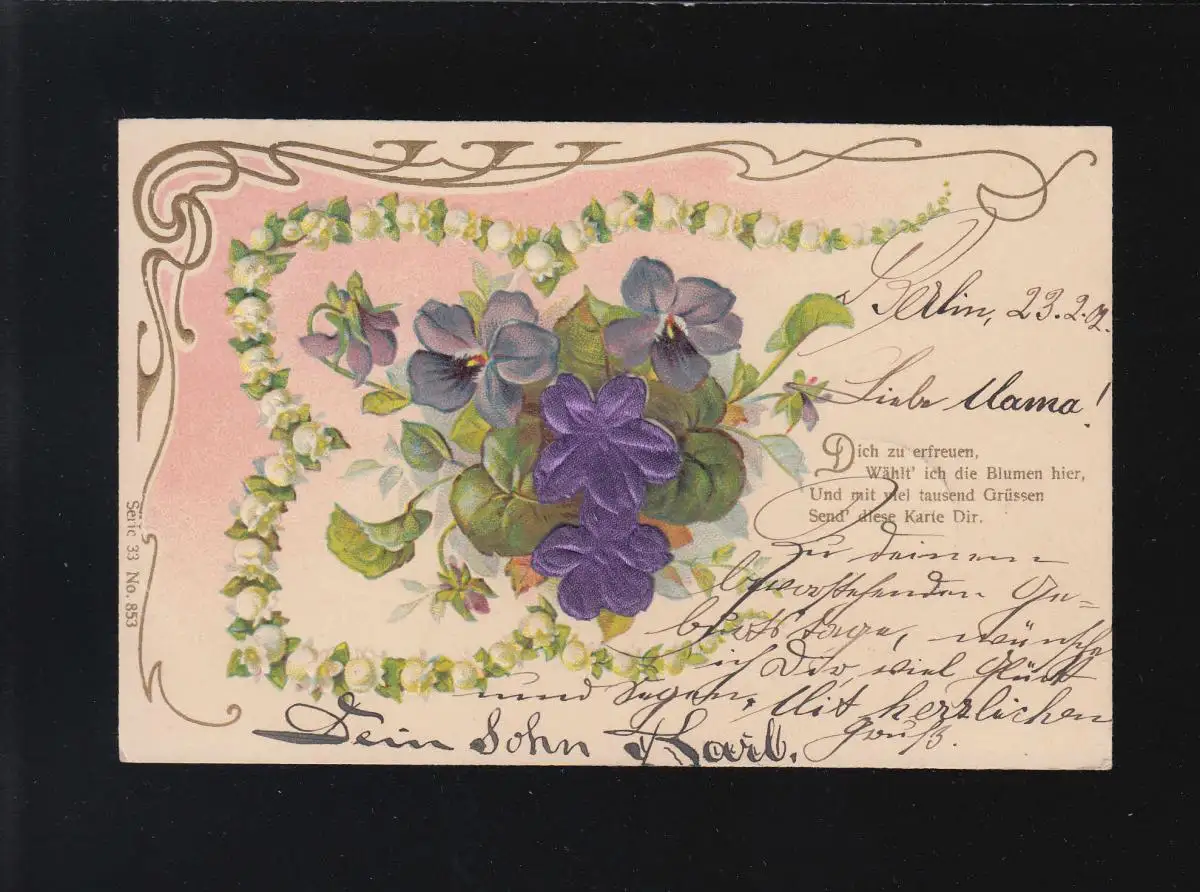 Berlin, 23.2.02.
Liebe Mama!
Dich zu erfreuen,
Wählt' ich die Blumen hier,
Und mit viel tausend Grüssen
Send' diese Karte Dir.
Zu deinem
bevorstehenden Ge=
burtstage, wünsche
ich Dir viel Glück
und Segen. Mit herzlichen
Gruß.
Dein Sohn Karl.
Serie 33 No. 853